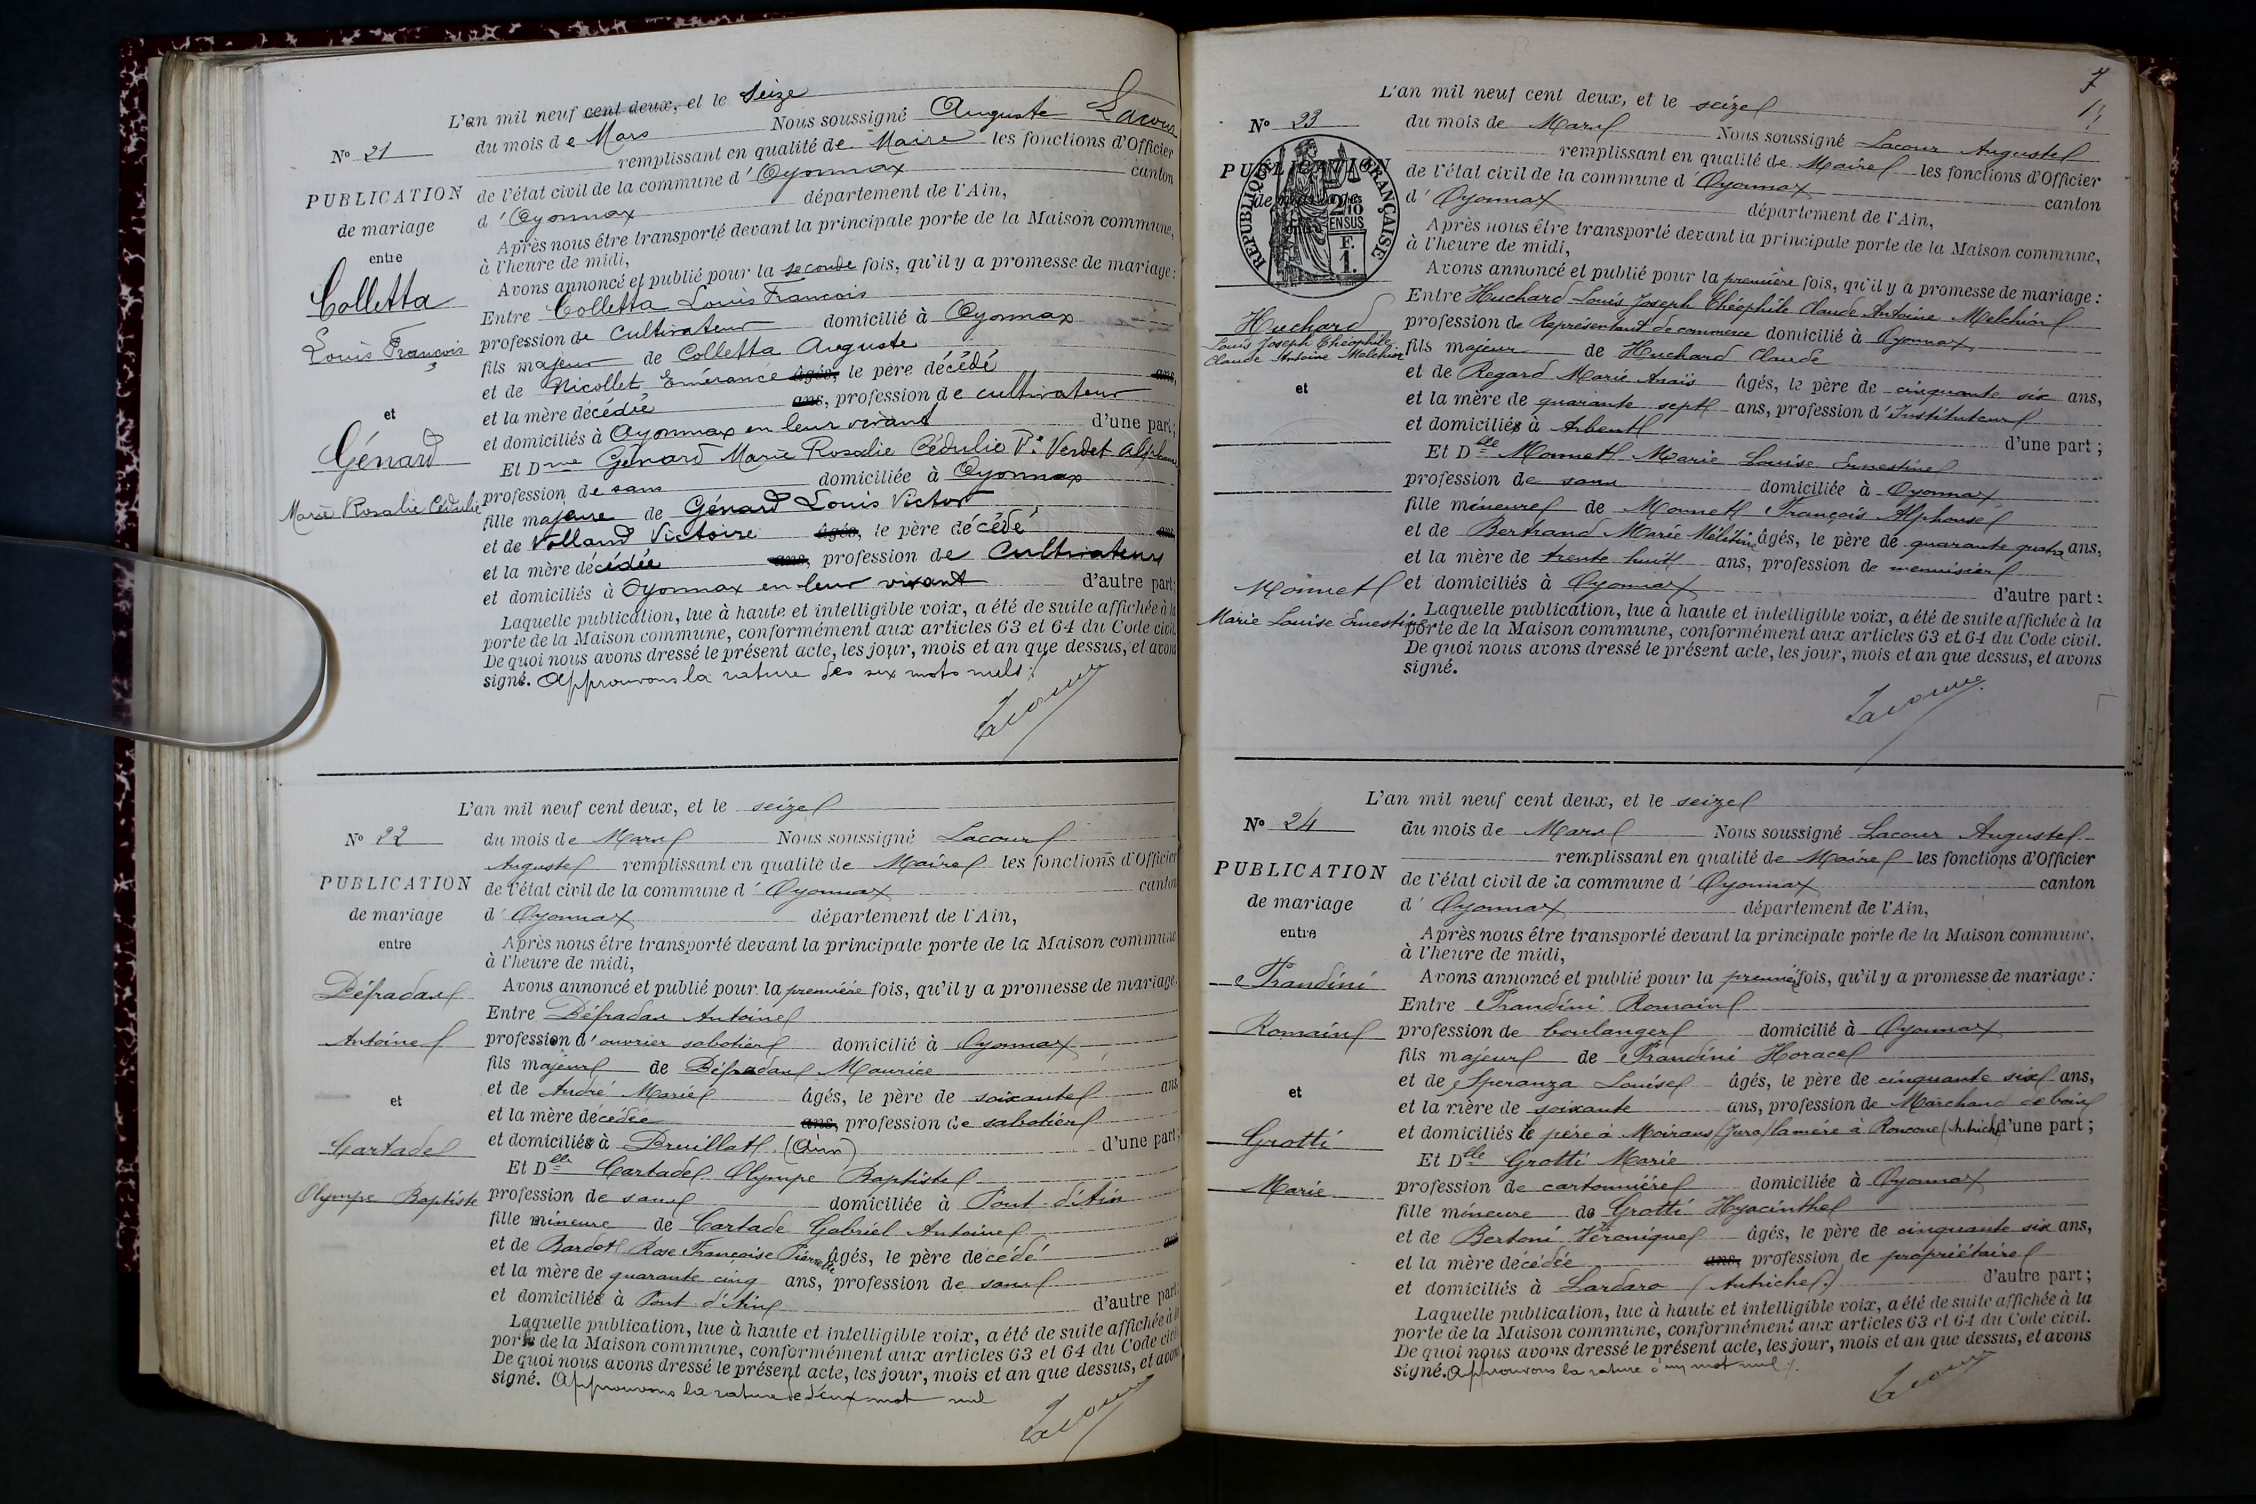 L'an mil neuf cent deux, et le Seize
N° 21
du mois de Mars Nous soussigné Auguste Lacour
remplissant en qualité de Maire les fonctions d'Officier
PUBLICATION
de mariage
entre
Colletta
Louis François
et
Génard
Marie Rosalie Cédulie
de l'état civil de la commune d'Oyonnax canton
d'Oyonnax département de l'Ain,
Après nous être transporté devant la principale porte de la Maison commune,
à l'heure de midi,
Avons annoncé et publié pour la seconde fois, qu'il y a promesse de mariage :
Entre Colletta Louis François
profession de cultivateur domicilié à Oyonnax
fils majeur de Colletta Auguste
et de Nicollet Emérance âgés, le père décédé ans,
et la mère décédée ans, profession de cultivateur
et domiciliés à Oyonnax en leur vivant d'une part ;
Et Dme Génard Marie Rosalie Cédulie Ve Verdet Alphonse
profession de sans domiciliée à Oyonnax
fille majeure de Génard Louis Victor
et de Volland Victoire âgés, le père décédé ans
et la mère décédée ans, profession de Cultivateurs
et domiciliés à Oyonnax en leur vivant d'autre part ;
Laquelle publication, lue à haute et intelligible voix, a été de suite affichée à la
porte de la Maison commune, conformément aux articles 63 et 64 du Code civil.
De quoi nous avons dressé le présent acte, les jour, mois et an que dessus, et avons
signé. Approuvons la rature des six mots nuls ./.
Lacour
L'an mil neuf cent deux, et le seize
N° 22
du mois de Mars Nous soussigné Lacour
Auguste remplissant en qualité de Maire les fonctions d'Officier
PUBLICATION
de mariage
entre
Défradas
Antoine
et
Cartade
Olympe Baptiste
de l'état civil de la commune d'Oyonnax canton
d'Oyonnax département de l'Ain,
Après nous être transporté devant la principale porte de la Maison commune
à l'heure de midi,
Avons annoncé et publié pour la première fois, qu'il y a promesse de mariage.
Entre Défradas Antoine
profession d'ouvrier sabotier domicilié à Oyonnax
fils majeur de Défradas Maurice
et de André Marie âgés, le père de soixante ans,
et la mère décédée ans, profession de sabotier
et domiciliés à Druillat (Ain) d'une part ;
Et Dlle Cartade Olympe Baptiste
profession de sans domiciliée à Pont-d'Ain
fille mineure de Cartade Gabriel Antoine
et de Bardot Rose Françoise Pierrette âgés, le père décédé ans
et la mère de quarante cinq ans, profession de sans
et domiciliés à Pont-d'Ain d'autre part
Laquelle publication, lue à haute et intelligible voix, a été de suite affichée à la
porte de la Maison commune, conformément aux articles 63 et 64 du Code civil
De quoi nous avons dressé le présent acte, les jour, mois et an que dessus, et avons
signé. Approuvons la rature de deux mot nul
Lacour
7
L'an mil neuf cent deux, et le seize
N° 23
du mois de Mars Nous soussigné Lacour Auguste
remplissant en qualité de Maire les fonctions d'Officier
PUBLICATION
de mariage
entre
REPUBLIQUE FRANÇAISE
2/10 EN SUS
1 F.
Huchard
Louis Joseph Théophile
Claude Antoine Melchior
et
Monnet
Marie Louise Ernestine
de l'état civil de la commune d'Oyonnax canton
d'Oyonnax département de l'Ain,
Après nous être transporté devant la principale porte de la Maison commune,
à l'heure de midi,
Avons annoncé et publié pour la première fois, qu'il y a promesse de mariage :
Entre Huchard Louis Joseph Théophile Claude Antoine Melchior
profession de Représentant de commerce domicilié à Oyonnax
fils majeur de Huchard Claude
et de Regard Marie Anaïs âgés, le père de cinquante six ans,
et la mère de quarante sept ans, profession d'Instituteur
et domiciliés à Arbent d'une part ;
Et Dlle Monnet Marie Louise Ernestine
profession de sans domiciliée à Oyonnax
fille mineure de Monnet François Alphonse
et de Bertrand Marie Mélitine âgés, le père de quarante quatre ans,
et la mère de trente huit ans, profession de menuisier
et domiciliés à Oyonnax d'autre part :
Laquelle publication, lue à haute et intelligible voix, a été de suite affichée à la
porte de la Maison commune, conformément aux articles 63 et 64 du Code civil.
De quoi nous avons dressé le présent acte, les jour, mois et an que dessus, et avons
signé.
Lacour
L'an mil neuf cent deux, et le seize
N° 24
du mois de Mars Nous soussigné Lacour Auguste
remplissant en qualité de Maire les fonctions d'Officier
PUBLICATION
de mariage
entre
Prandini
Romain
et
Grotti
Marie
de l'état civil de la commune d'Oyonnax canton
d'Oyonnax département de l'Ain,
Après nous être transporté devant la principale porte de la Maison commune,
à l'heure de midi,
Avons annoncé et publié pour la première fois, qu'il y a promesse de mariage :
Entre Prandini Romain
profession de boulanger domicilié à Oyonnax
fils majeur de Prandini Horace
et de Speranza Louise âgés, le père de cinquante six ans,
et la mère de soixante ans, profession de Marchand de bois
et domiciliés le père à Moirans (Jura) la mère à Roncone (Autriche) d'une part ;
Et Dlle Grotti Marie
profession de cartonnière domiciliée à Oyonnax
fille mineure de Grotti Hyacinthe
et de Bertoni Véronique âgés, le père de cinquante six ans,
et la mère décédée ans, profession de propriétaire
et domiciliés à Lardaro (Autriche) d'autre part ;
Laquelle publication, lue à haute et intelligible voix, a été de suite affichée à la
porte de la Maison commune, conformément aux articles 63 et 64 du Code civil.
De quoi nous avons dressé le présent acte, les jour, mois et an que dessus, et avons
signé. Approuvons la rature d'un mot nul ./.
Lacour